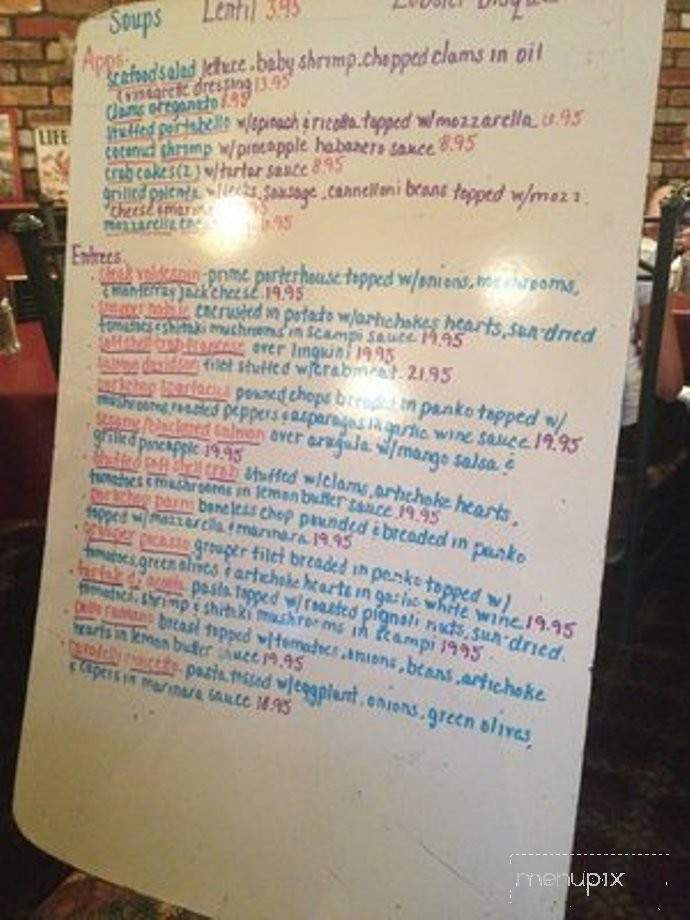 Soups Lentil 3.95 Lobster Bisque
Apps:
Seafood salad lettuce, baby shrimp, chopped clams in oil
& vinagrette dressing 13.95
clams oreganato 8.95
stuffed portabello w/spinach & ricotta topped w/mozzarella
coconut shrimp w/pineapple habanero sauce 8.95
crab cakes(2) w/tartar sauce 8.95
grilled polenta sausage, cannelloni beans topped w/mozz.
cheese & marin
mozzarella
LIFE
Entrees:
· steak valdespin - prime porterhouse topped w/onions, mushrooms,
& monterray jack cheese 19.95
· snapper encrusted in potato w/artichokes hearts, sun-dried
tomatoes & shitaki mushrooms in scampi sauce 19.95
· softshell crab francese over linguini 19.95
· salmon davidson filet stuffed w/crabmeat 21.95
· porkchop spartacus pouned chops breaded in panko topped w/
mushrooms, roasted peppers & asparagus in garlic wine sauce 19.95
· sesame/blackened salmon over arugula w/mango salsa &
grilled pineapple 19.95
· stuffed soft shell crab stuffed w/clams, artichoke hearts,
tomatoes & mushrooms in lemon butter sauce 19.95
· porkchop parm boneless chop pounded & breaded in panko
topped w/mozzarella & marinara 19.95
· grouper picasso grouper filet breaded in panko topped w/
tomatoes, green olives & artichoke hearts in garlic white wine 19.95
· pasta topped w/roasted pignoli nuts, sun-dried
tomatoes, shrimp & shitaki mushrooms in scampi 19.95
· pollo romano breast topped w/tomatoes, onions, beans, artichoke
hearts in lemon butter sauce 19.95
· pasta tossed w/eggplant, onions, green olives,
& capers in marinara sauce 18.95
menupix